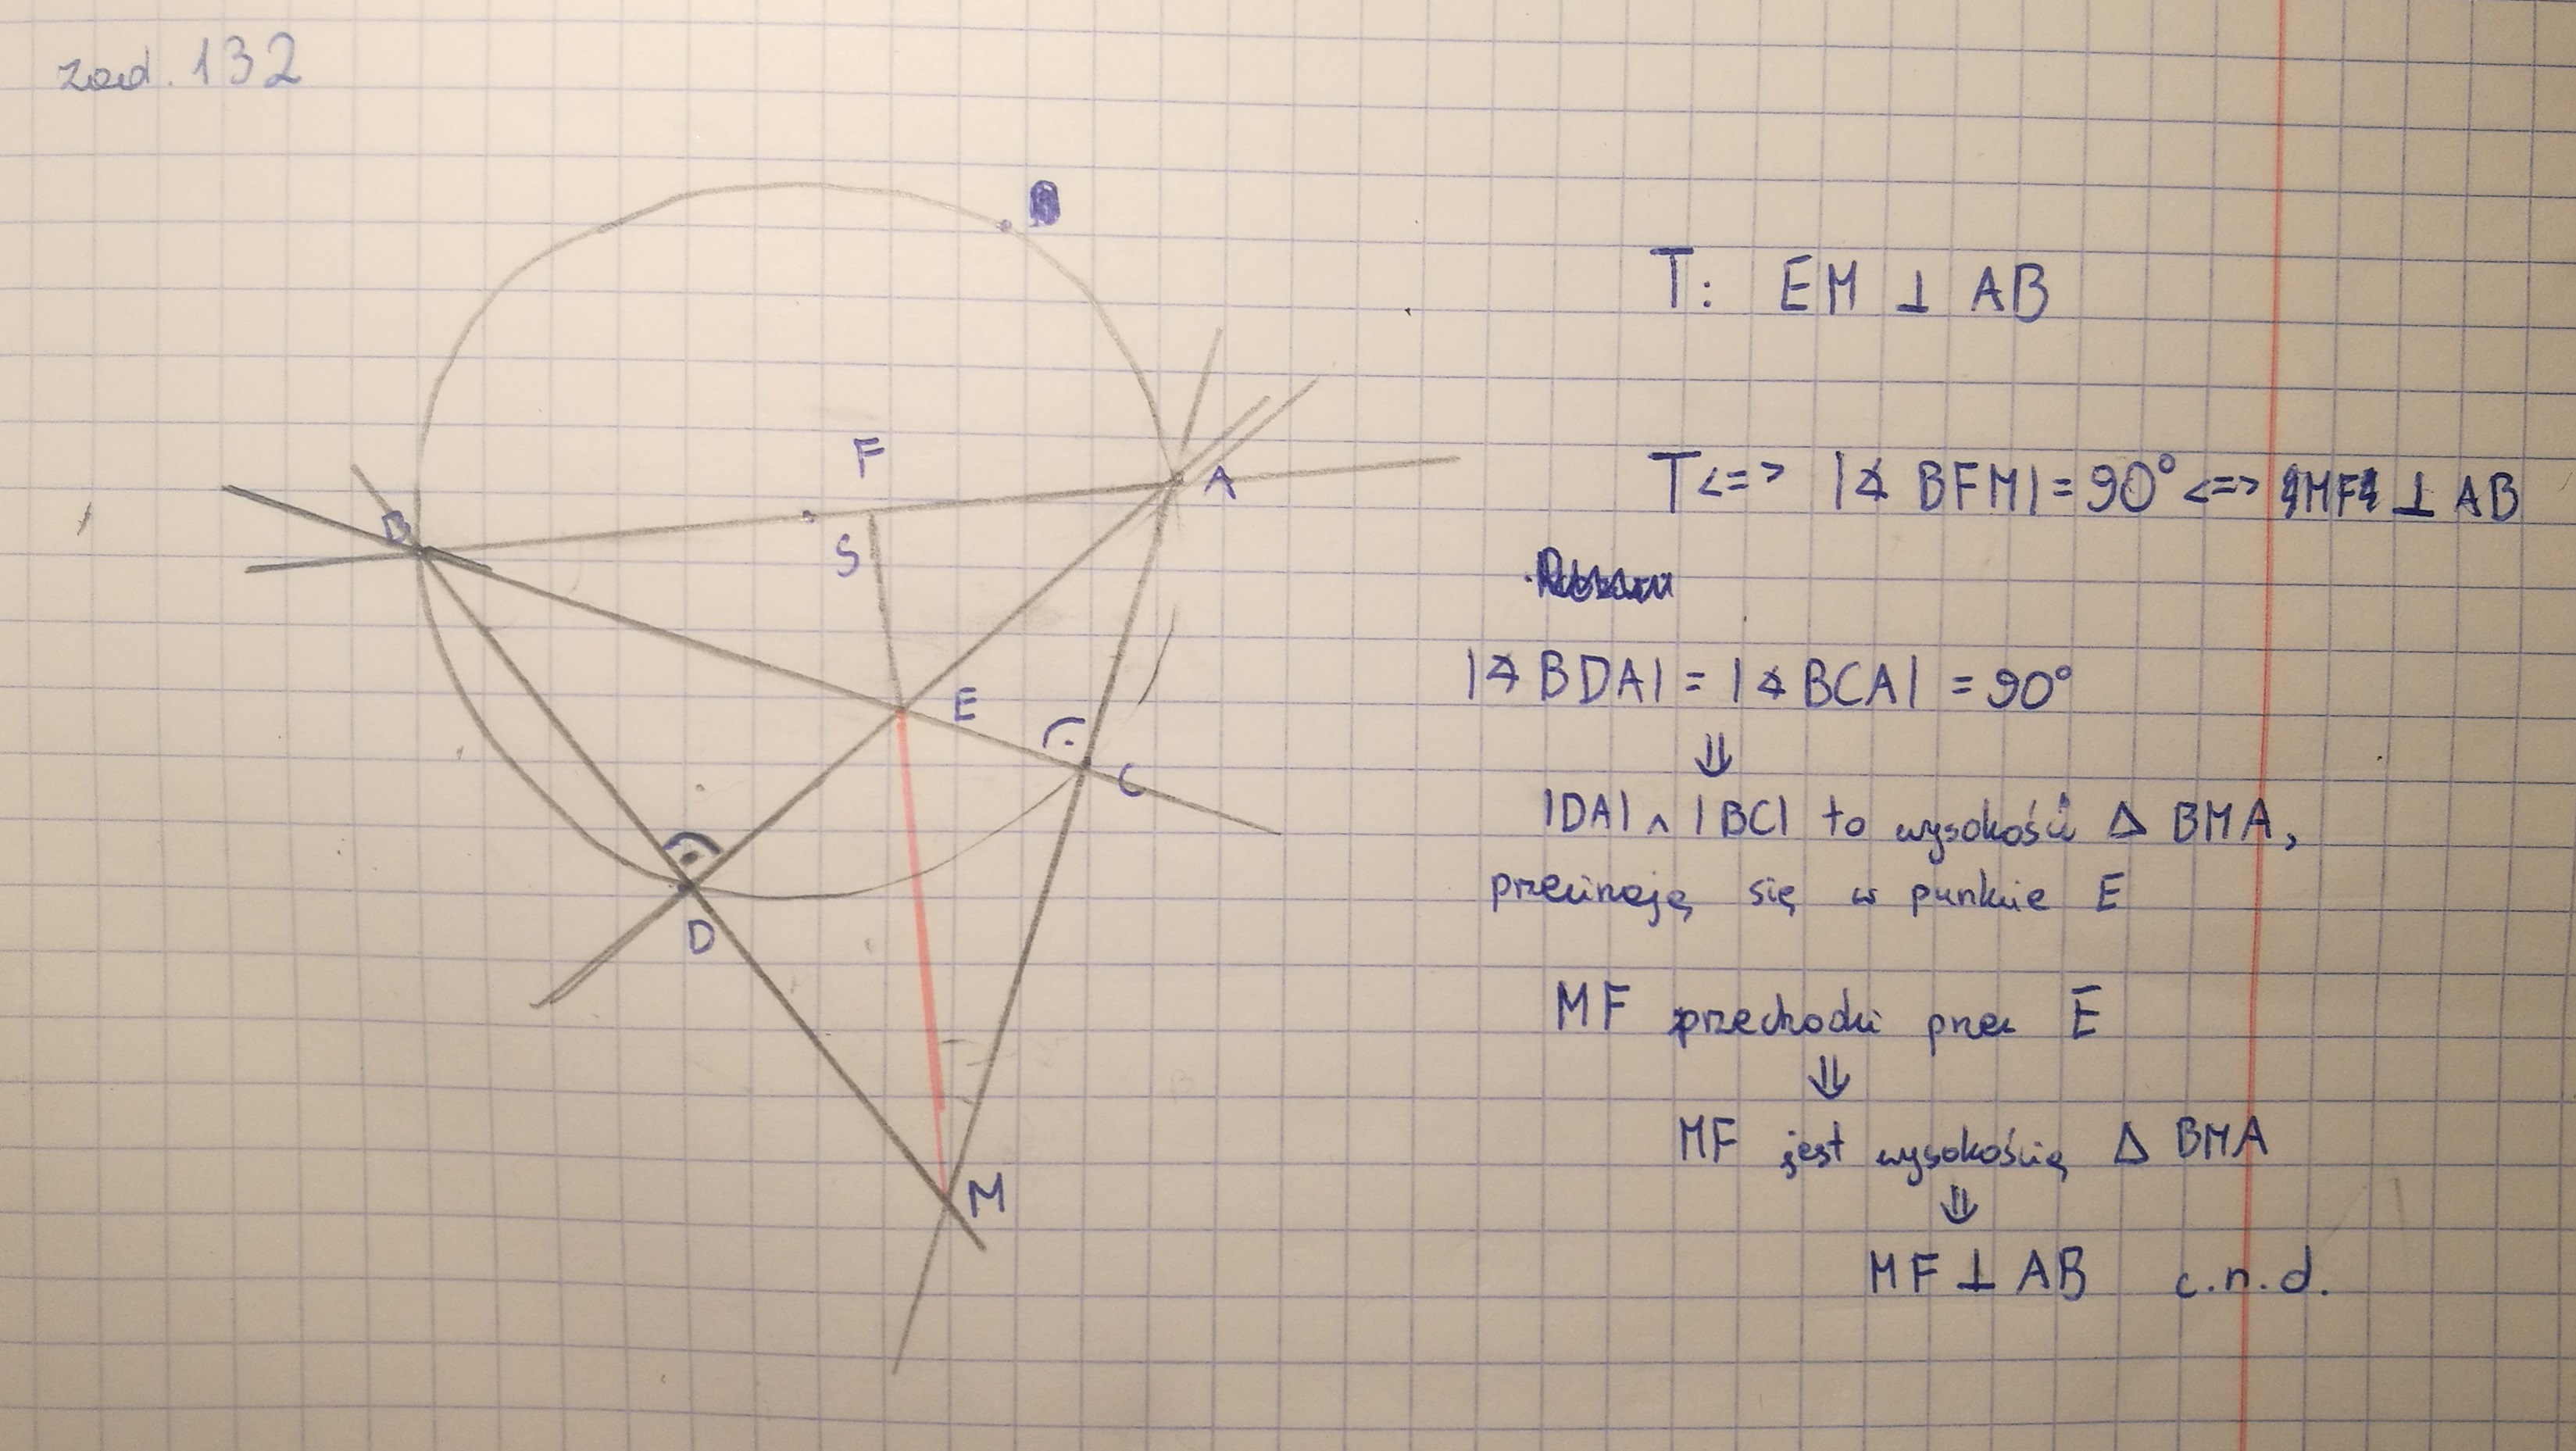 zad. 132
T: EM ⊥ AB
F
A
B
S
T <=> |∢ BFM| = 90° <=> MF ⊥ AB
|∢ BDA| = |∢ BCA| = 90°
⇓
E
C
|DA| ∧ |BC| to wysokości Δ BMA,
przecinają się w punkcie E
D
MF przechodzi przez E
⇓
MF jest wysokością Δ BMA
⇓
M
MF ⊥ AB c.n.d.